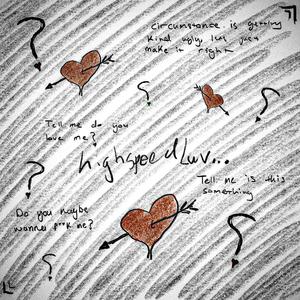 circumstance is getting
kind ugly, lets just
make it right
Tell me do you
love me?
highspeedLuv...
Tell me is this
something
Do you maybe
wanna f**k me?